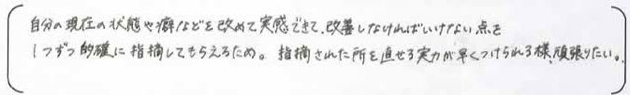 自分の現在の状態や癖などを改めて実感できて、改善しなければいけない点を
1つずつ的確に指摘してもらえるため。指摘された所を直せる実力が早くつけられる様、頑張りたい。